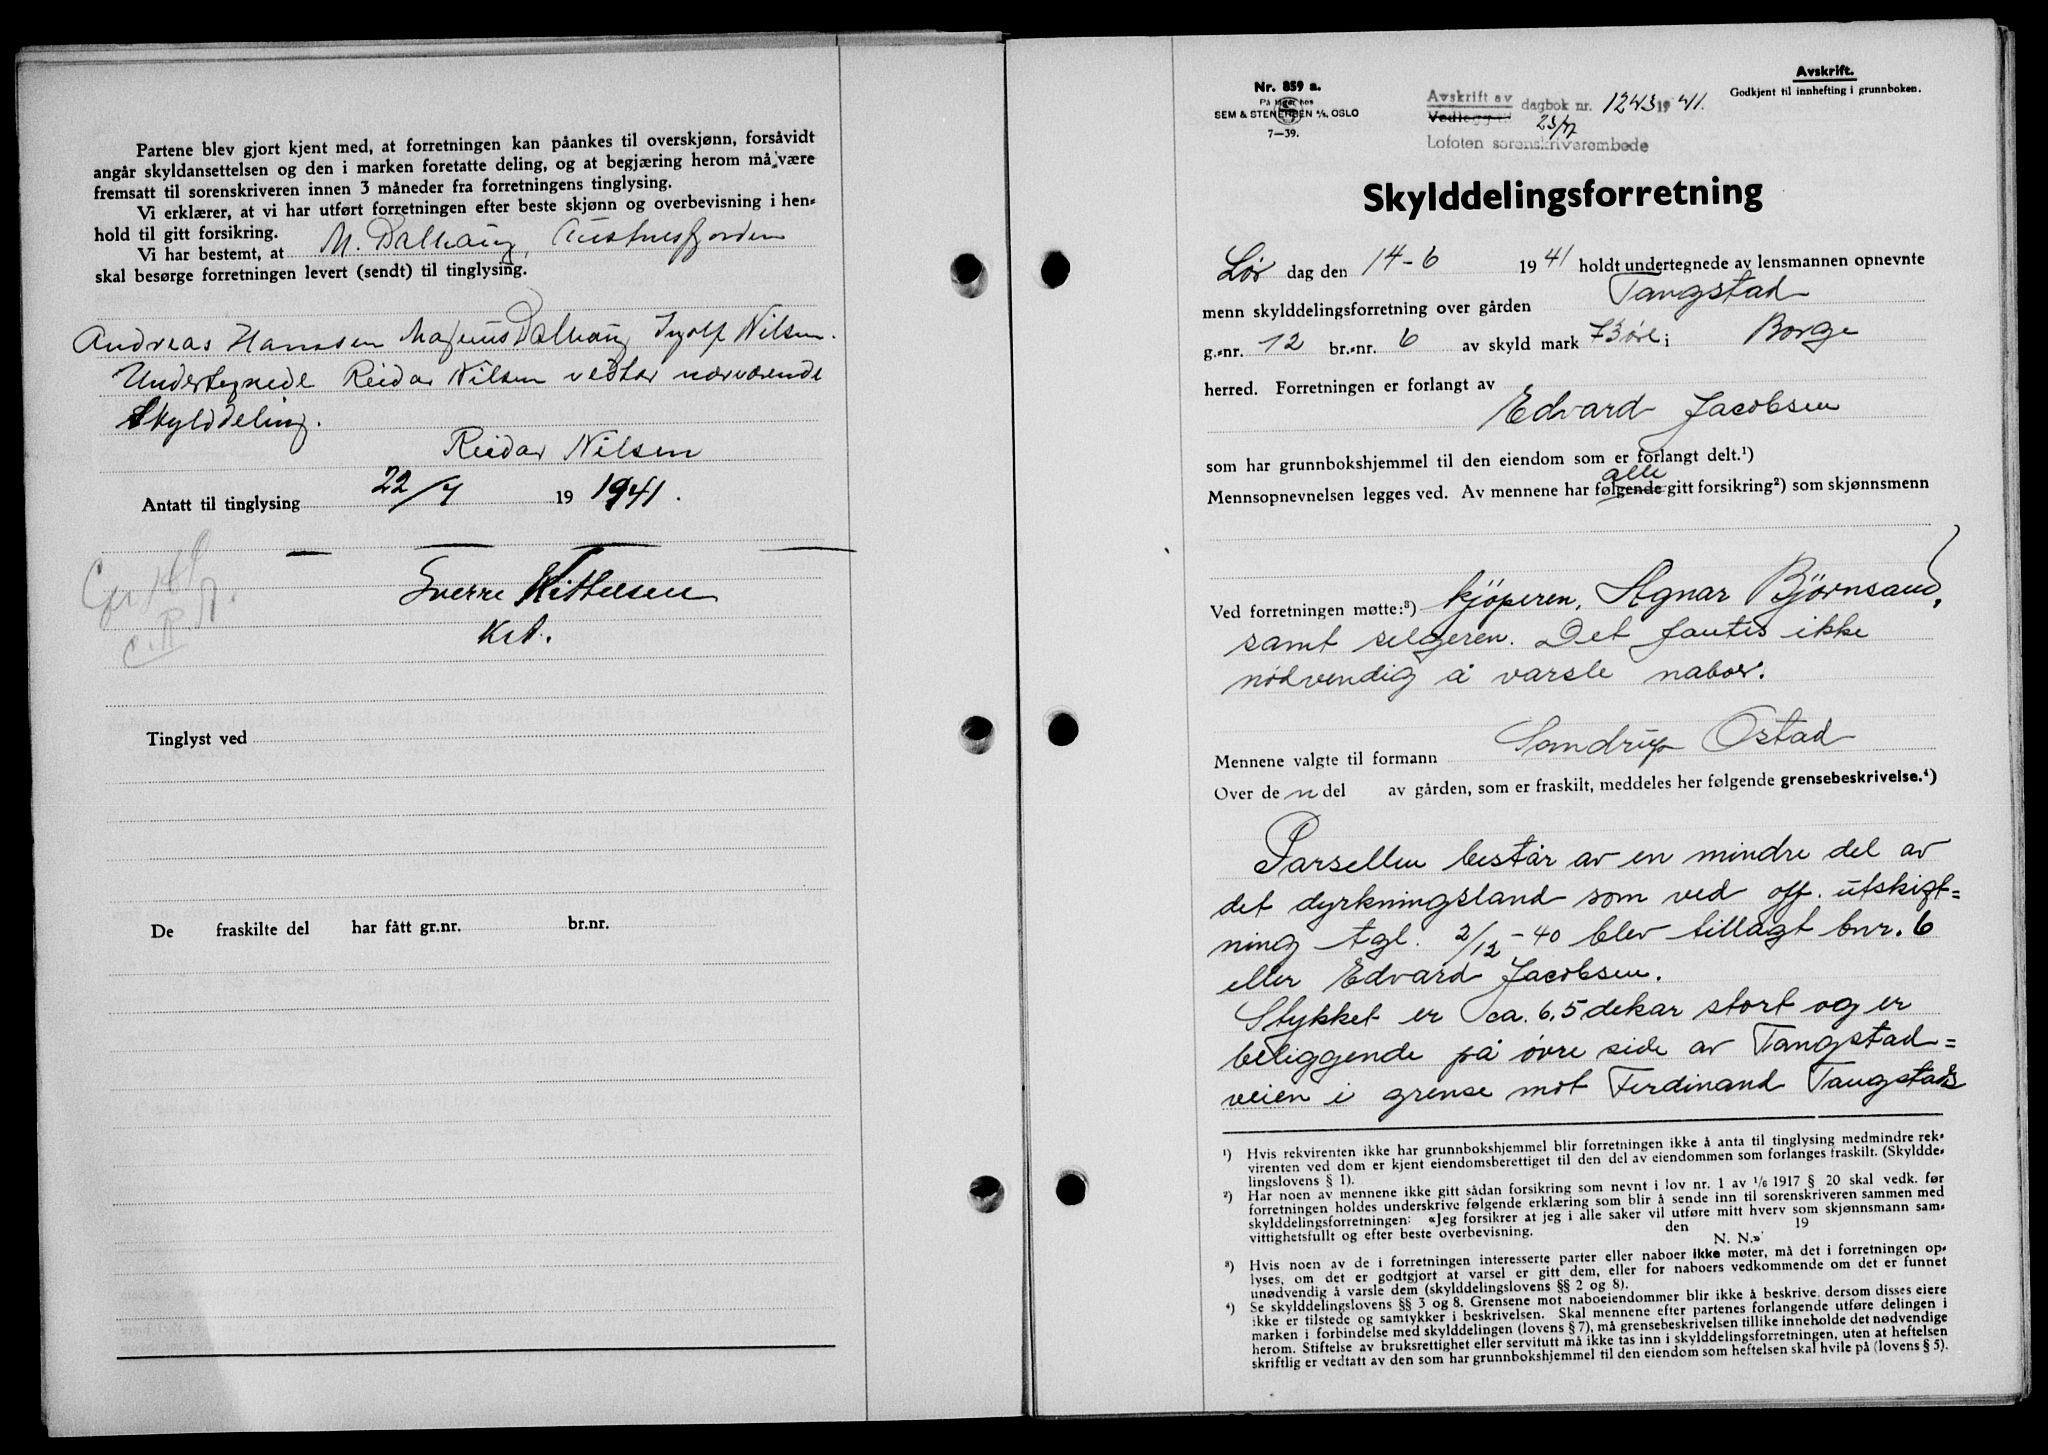 Partene blev gjort kjent med, at forretningen kan påankes til overskjønn, forsåvidt
angår skyldansettelsen og den i marken foretatte deling, og at begjæring herom må være
fremsatt til sorenskriveren innen 3 måneder fra forretningens tinglysing.
Vi erklærer, at vi har utført forretningen efter beste skjønn og overbevisning i hen=
hold til gitt forsikring.
Vi har bestemt, at M. Dalhaug, Austnesfjorden
skal besørge forretningen levert (sendt) til tinglysing.
Andreas Hanssen Magnus Dalhaug Ingolf Nilsen.
Undertegnede Reidar Nilsen vedtar nærværende
Skylddeling.
Reidar Nilsen
Antatt til tinglysing 22/7 19 1941.
Sverre Kittelsen
Tinglyst ved
De fraskilte del har fått gr.nr. br.nr.
Nr. 859 a.
På lager hos
SEM & STENERSEN A/S, OSLO
7—39.
Avskrift av
Vedlegg til dagbok nr. 1243 19 41.
23/7
Lofoten sorenskriverembede
Avskrift.
Godkjent til innhefting i grunnboken.
Skylddelingsforretning
Lør dag den 14-6 19 41 holdt undertegnede av lensmannen opnevnte
menn skylddelingsforretning over gården Tangstad
g.=nr. 12 br.=nr. 6 av skyld mark i Borge
herred. Forretningen er forlangt av
Edvard Jacobsen
som har grunnbokshjemmel til den eiendom som er forlangt delt.¹)
alle
Mennsopnevnelsen legges ved. Av mennene har følgende gitt forsikring²) som skjønnsmenn
Ved forretningen møtte:³) kjøperen, Agnar Bjørnsand,
samt selgeren. Det fantes ikke
nødvendig å varsle naboer.
Mennene valgte til formann Sandrup Ostad
Over de n del av gården, som er fraskilt, meddeles her følgende grensebeskrivelse.⁴)
Parsellen består av en mindre del av
det dyrkningsland som ved off. utskift=
ning tgl. 2/12-40 blev tillagt bnr. 6
eller Edvard Jacobsen.
Stykket er ca. 6,5 dekar stort og er
beliggende på øvre side av Tangstad=
veien i grense mot Ferdinand Tangstads
¹) Hvis rekvirenten ikke har grunnbokshjemmel blir forretningen ikke å anta til tinglysing medmindre rek=
virenten ved dom er kjent eiendomsberettiget til den del av eiendommen som forlanges fraskilt. (Skyldde=
lingslovens § 1).
²) Har noen av mennene ikke gitt sådan forsikring som nevnt i lov nr. 1 av 1/6 1917 § 20 skal vedk. før
forretningen holdes underskrive følgende erklæring som blir å sende inn til sorenskriveren sammen med
skylddelingsforretningen: «Jeg forsikrer at jeg i alle saker vil utføre mitt hverv som skjønnsmann sam=
vittighetsfullt og efter beste overbevisning. den 19
N. N.»
³) Hvis noen av de i forretningen interesserte parter eller naboer ikke møter, må det i forretningen op=
lyses, om det er godtgjort at varsel er gitt dem, eller for naboers vedkommende om det er funnet
unødvendig å varsle dem (skylddelingslovens §§ 2 og 8).
⁴) Se skylddelingslovens §§ 3 og 8. Grensene mot naboeiendommer blir ikke å beskrive, dersom disses eiere
ikke er tilstede og samtykker i beskrivelsen. Skal mennene efter partenes forlangende utføre delingen i
marken i forbindelse med skylddelingen (lovens § 7), må grensebeskrivelsen tillike inneholde det nødvendige
herom. Stiftelse av bruksrettighet eller servitutt må ikke tas inn i skylddelingsforretningen, uten at heftelsen
skriftlig er vedtatt av den som har grunnbokshjemmel til den eiendom som heftelsen skal hvile på (lovens § 5).